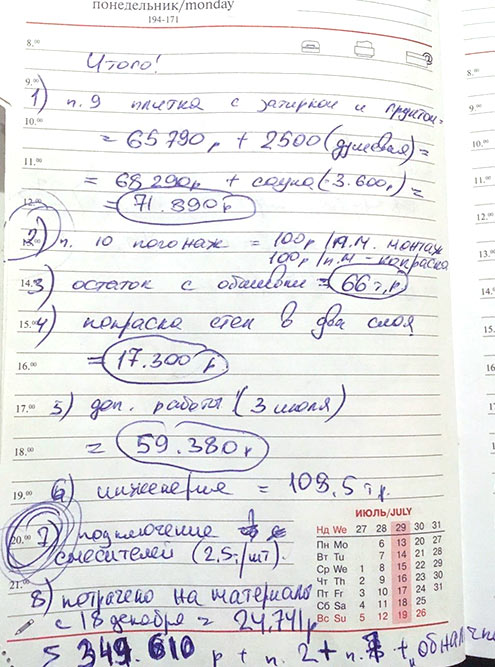 понедельник/monday
194-171
8.00
Итого!
9.00
1) п. 9 плитка с затиркой и грунтом=
10.00
= 65790р + 2500 (душевая) =
11.00
= 68290р + сауна (3.600р) =
12.00
= 71.890р
2) п. 10 погонаж = 100р/п.м. монтаж
100р/п.м - покраска
14.00
3) остаток с обшивки = 66 т.р
15.00
4) покраска стен в два слоя
16.00
= 17.300 р
17.00
5) доп. работы (3 июля)
18.00
= 59.380р
19.00
6) инженерия = 109,5 т.р.
20.00
7) подключение
смесителей (2,5т/шт).
21.00
8) потрачено на материалы
с 18 декабря = 24.741р
349.610 р + п. 2 + п. 7 + обналичка
ИЮЛЬ/JULY
Нд We 27 28 29 30 31
Пн Mo 6 13 20 27
Вт Tu 7 14 21 28
Ср We 1 8 15 22 29
Чт Th 2 9 16 23 30
Пт Fr 3 10 17 24 31
Сб Sa 4 11 18 25
Вс Su 5 12 19 26